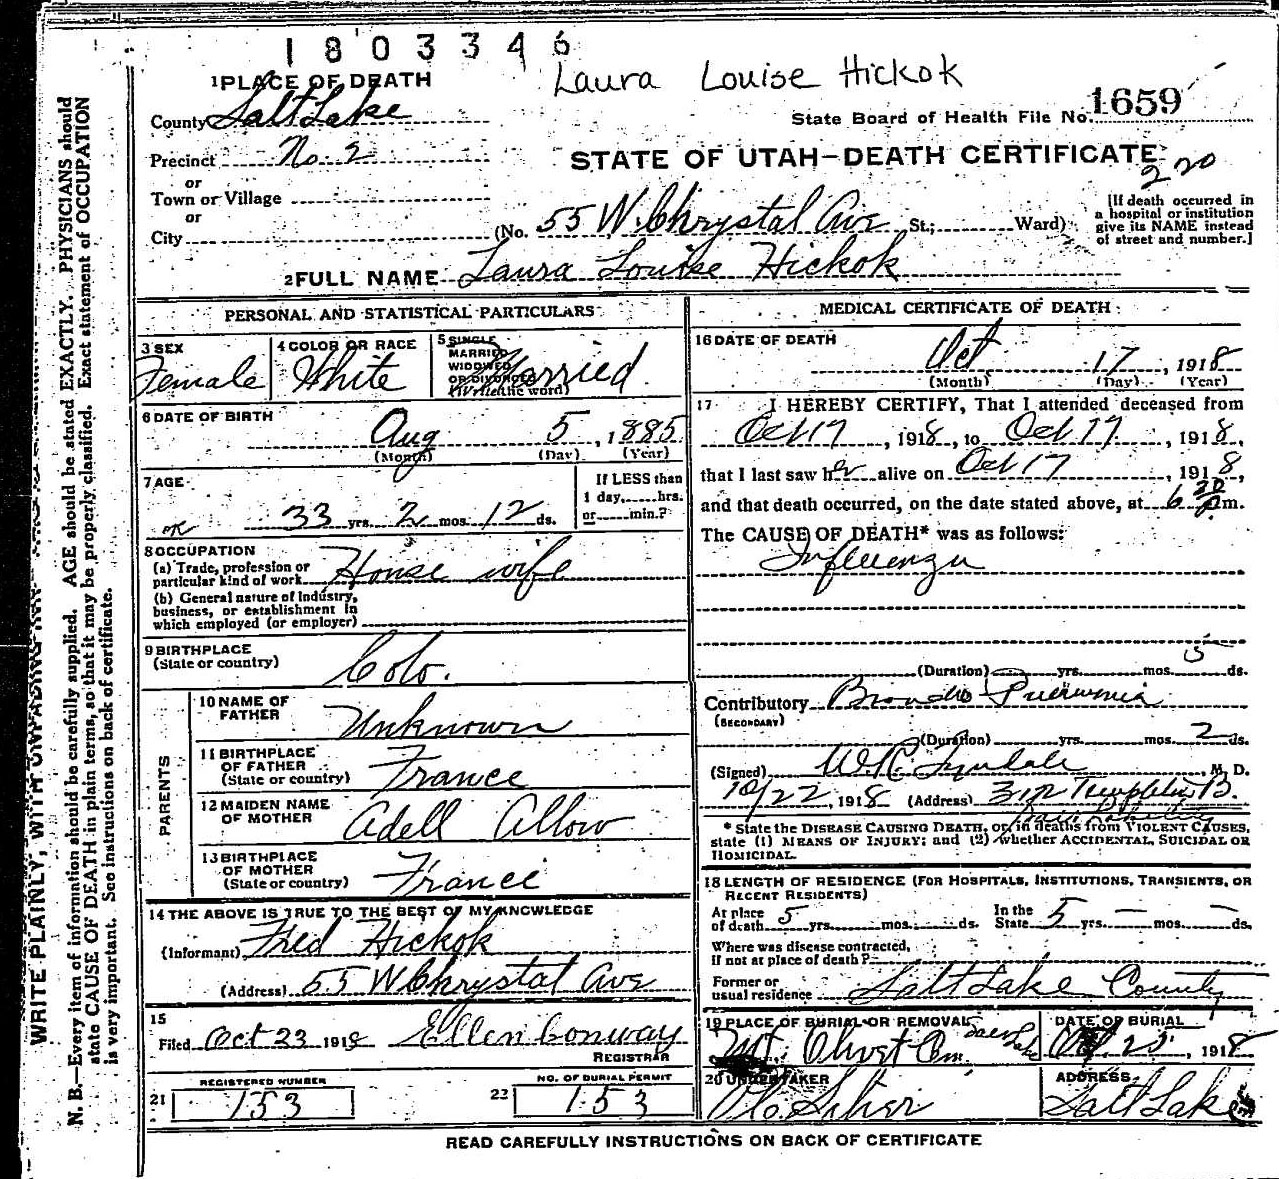 1803346
Laura Louise Hickok
1 PLACE OF DEATH
County Salt Lake
State Board of Health File No. 1659
Precinct No. 2
STATE OF UTAH—DEATH CERTIFICATE
220
or
Town or Village
or
City (No. 55 W. Chrystal Ave St.; Ward)
[If death occurred in
a hospital or institution
give its NAME instead
of street and number.]
2 FULL NAME Laura Louise Hickok
PERSONAL AND STATISTICAL PARTICULARS
3 SEX
Female
4 COLOR OR RACE
White
5 SINGLE
MARRIED
WIDOWED
OR DIVORCED
(Write the word)
Married
6 DATE OF BIRTH
Aug 5, 1885
(Month) (Day) (Year)
7 AGE
OK 33 yrs. 2 mos. 12 ds.
If LESS than
1 day, hrs.
or min.?
8 OCCUPATION
(a) Trade, profession or
particular kind of work House wife
(b) General nature of Industry,
business, or establishment in
which employed (or employer)
9 BIRTHPLACE
(State or country) Colo.
PARENTS
10 NAME OF
FATHER Unknown
11 BIRTHPLACE
OF FATHER
(State or country) France
12 MAIDEN NAME
OF MOTHER Adell Allow
13 BIRTHPLACE
OF MOTHER
(State or country) France
14 THE ABOVE IS TRUE TO THE BEST OF MY KNOWLEDGE
(Informant) Fred Hickok
(Address) 55 W Chrystal Ave
15
Filed Oct 23 1918 Ellen Conway
REGISTRAR
REGISTERED NUMBER
21 153
NO. OF BURIAL PERMIT
22 153
MEDICAL CERTIFICATE OF DEATH
16 DATE OF DEATH
Oct 17, 1918
(Month) (Day) (Year)
17 I HEREBY CERTIFY, That I attended deceased from
Oct 17, 1918, to Oct 17, 1918,
that I last saw her alive on Oct 17, 1918,
and that death occurred, on the date stated above, at 6 30 p.m.
The CAUSE OF DEATH* was as follows:
Influenza
(Duration) yrs. mos. 5 ds.
Contributory Broncho Pneumonia
(SECONDARY)
(Duration) yrs. mos. 2 ds.
(Signed) W.R. Tyndale, M. D.
10/22, 1918 (Address) Templeton B.
* State the DISEASE CAUSING DEATH, or, in deaths from VIOLENT CAUSES,
state (1) MEANS OF INJURY; and (2) whether ACCIDENTAL, SUICIDAL OR
HOMICIDAL.
18 LENGTH OF RESIDENCE (FOR HOSPITALS, INSTITUTIONS, TRANSIENTS, OR
RECENT RESIDENTS)
At place
of death 5 yrs. mos. ds.
In the
State 5 yrs. — mos. — ds.
Where was disease contracted,
if not at place of death?
Former or
usual residence Salt Lake County
19 PLACE OF BURIAL OR REMOVAL
Mt. Olivet Cem. Salt Lake
DATE OF BURIAL
Oct. 23, 1918
20 UNDERTAKER
ADDRESS
Salt Lake
READ CAREFULLY INSTRUCTIONS ON BACK OF CERTIFICATE
N. B.—Every item of information should be carefully supplied. AGE should be stated EXACTLY. PHYSICIANS should
state CAUSE OF DEATH in plain terms, so that it may be properly classified. Exact statement of OCCUPATION
is very important. See instructions on back of certificate.
WRITE PLAINLY, WITH UNFADING INK